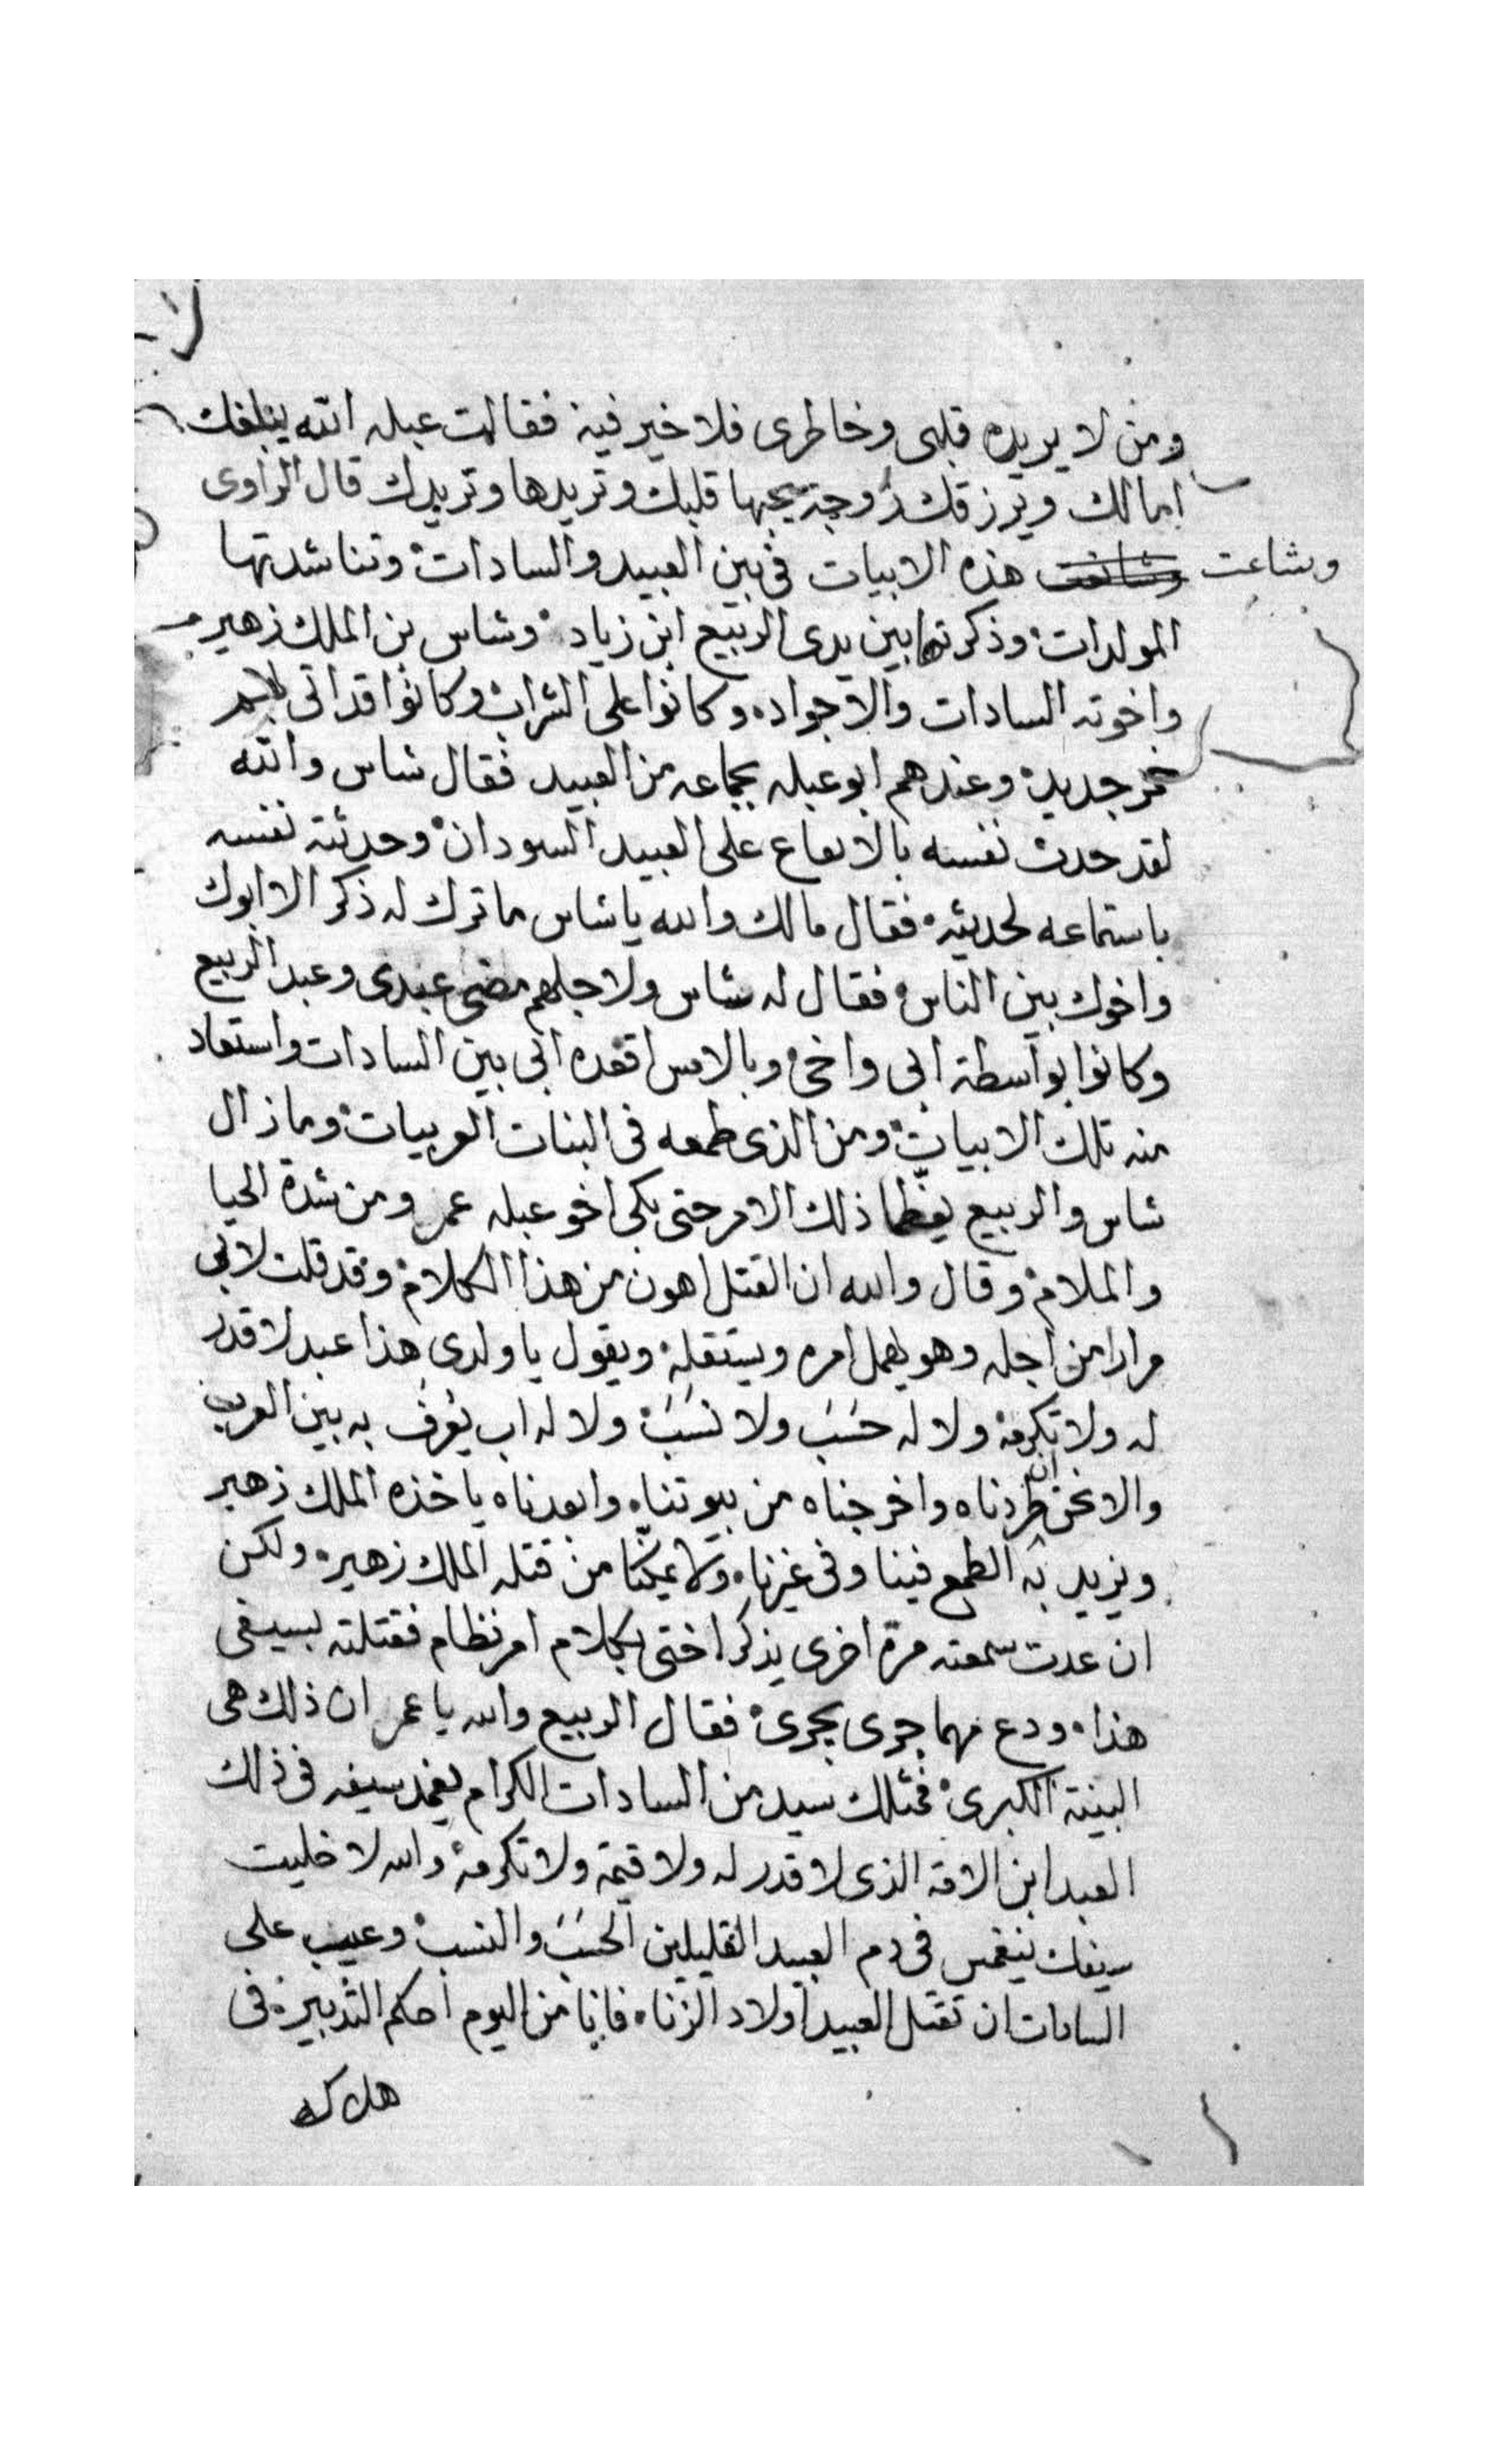 لا
ومن لا يريده قلبى وخاطرى فلا خير فيه فقالت عبله الله يبلغك
امالك ويرزقك زوجة يحبها قلبك وتريدها وتريدك قال الراوى
وشاعت هذه الابيات فى بين العبيد والسادات وتناشدتها
المولدات وذكرتها بين يدى الربيع ابن زياد وشاس بن الملك زهير
واخوته السادات والاجواد وكانوا على الشراب وكانوا قد اتى لهم
خمر جديد وعندهم ابو عبله بجماعه من العبيد فقال شاس والله
لقد حدث نفسه بالارتفاع على العبيد السودان وحدثته نفسه
باستماعه لحديثه فقال مالك والله ياشاس ما ترك له ذكر الا ابوك
واخوك بين الناس فقال له شاس ولاجلهم مضى عبدى وعبد الربيع
وكانوا بواسطة ابى واخى وبالامس اقعده ابى بين السادات واستعاد
منه تلك الابيات ومن الذى طمعه فى البنات العربيات وما زال
شاس والربيع يعظما ذلك الامر حتى بكى اخو عبله عمر ومن شدة الحيا
والملام وقال والله ان القتل اهون من هذا الكلام وقد قلت لابى
مرارا من اجله وهو يهمل امره ويستقله ويقول يا ولدى هذا عبد لا قدر
له ولا تكرمه ولا له حسَبَ ولا نسَبَ ولا له اب يعرف به بين العرب
والا نحن ان طردناه واخرجناه من بيوتناه وابعدناه ياخذه الملك زهير
ويزيد به الطمع فينا وفى غيرنا ولا يمكنا من قتله الملك زهير ولكن
ان عدت سمعته مرة اخرى يذكر اختى بكلام امر نظام فقتلته بسيفى
هذا ودع مهما جرى يجرى فقال الربيع والله يا عمر ان ذلك هى
البينة الكبرى فمثلك سيد من السادات الكرام يغمد سيفه فى ذلك
العبد ابن الامة الذى لا قدر له ولا قيمة ولا تكرمه والله لا خليت
سيفك ينغمس فى دم العبيد القليلين الحسَبَ والنسب وعيب على
السادات ان تقتل العبيد اولاد الزناه فانا من اليوم احكم التدبير فى
هلاك